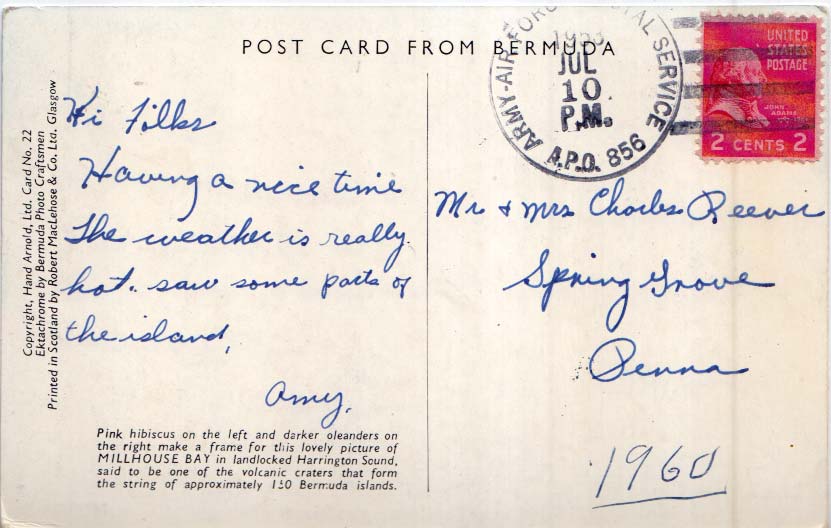 POST CARD FROM BERMUDA
ARMY-AIR FORCE POSTAL SERVICE
JUL
10
P.M.
A.P.O. 856
UNITED
STATES
POSTAGE
JOHN
ADAMS
2 CENTS 2
Hi Folks
Having a nice time
The weather is really
hot. saw some parts of
the island,
Amy,
Mr & Mrs Charles Reever
Spring Grove
Penna
1960
Copyright, Hand Arnold, Ltd. Card No. 22
Ektachrome by Bermuda Photo Craftsmen
Printed in Scotland by Robert MacLehose & Co, Ltd. Glasgow
Pink hibiscus on the left and darker oleanders on
the right make a frame for this lovely picture of
MILLHOUSE BAY in landlocked Harrington Sound,
said to be one of the volcanic craters that form
the string of approximately 150 Bermuda islands.